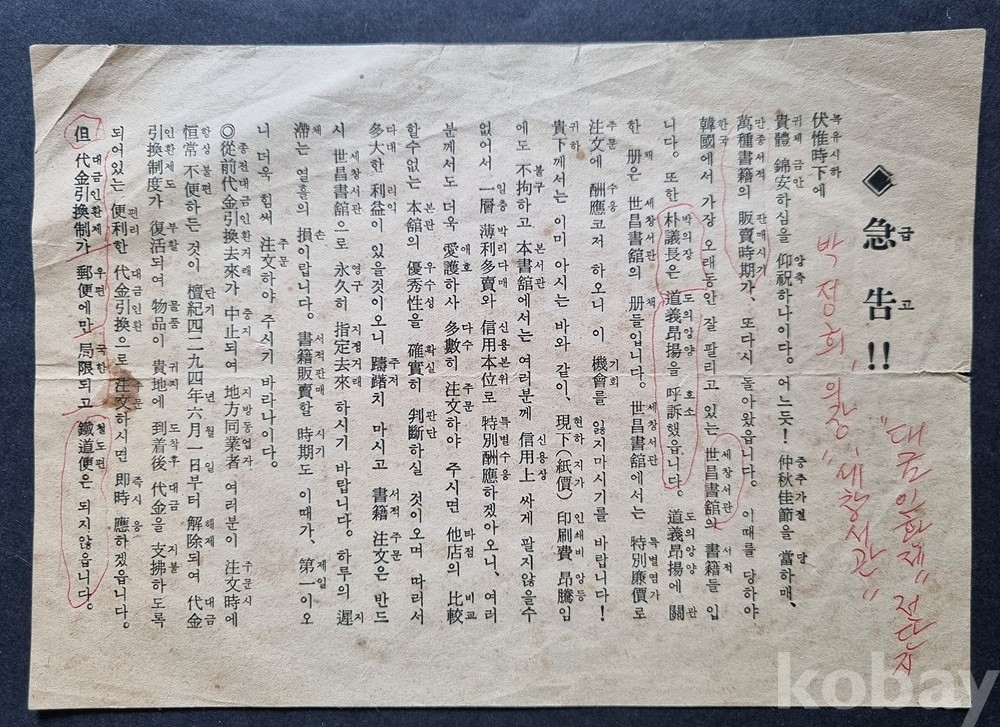 급고
◆急告!!
박정희 의장 "세창서관"
"대금인환제" 전단지
복유시하
伏惟時下에
귀체 금안 앙축 중추가절 당
貴體 錦安하심을 仰祝하나이다。어느듯! 仲秋佳節을 當하매、
만종서적 판매시기
萬種書籍의 販賣時期가、또다시 돌아왔읍니다。이때를 당하야
한국 세창서관 서적
韓國에서 가장 오래동안 잘 팔리고 있는 世昌書舘의 書籍들 입
박의장 도의앙양 호소 도의앙양 관
니다。또한 朴議長은 道義昻揚을 呼訴했읍니다。道義昻揚에 關
책 세창서관 책 세창서관 특별염가
한 册은 世昌書舘의 册들입니다。世昌書舘에서는 特別廉價로
주문 수응 기회
注文에 酬應코저 하오니 이 機會를 잃지마시기를 바랍니다!
귀하 현하 지가 인쇄비 앙등
貴下께서는 이미 아시는 바와 같이、現下(紙價) 印刷費 昻騰임
불구 본서관 신용상
에도 不拘하고 本書舘에서는 여러분께 信用上 싸게 팔지않을수
일층 박리다매 신용본위 특별수응
없어서 一層 薄利多賣와 信用本位로 特別酬應하겠아오니、여러
애호 다수 주문 타점 비교
분께서도 더욱 愛護하사 多數히 注文하야 주시면 他店의 比較
본관 우수성 확실 판단
할수없는 本舘의 優秀性을 確實히 判斷하실 것이오며 따라서
다대 리익 주저 서적 주문
多大한 利益이 있을것이오니 躊躇치 마시고 書籍 注文은 반드
세창서관 영구 지정거래 지
시 世昌書舘으로 永久히 指定去來 하시기 바랍니다。하루의 遲
체 손 서적판매 시기 제일
滯는 열흘의 損이랍니다。書籍販賣할 時期도 이때가、第一이오
주문
니 더욱 힘써 注文하야 주시기 바라나이다。
종전대금인환거래 중지 지방동업자 주문시
◎從前代金引換去來가 中止되여 地方同業者 여러분이 注文時에
항상불편 단기 년 월 일 해제 대금
恒常不便하든 것이 檀紀四二九四年六月一日부터 解除되여 代金
인환제도 부활 물품 귀지 도착후 대금 지불
引換制度가 復活되여 物品이 貴地에 到着後 代金을 支拂하도록
편리 대금인환 주문 즉시 응
되어있는 便利한 代金引換으로 注文하시면 即時 應하겠읍니다。
대금인환제 우편 국한 철도편
但 代金引換制가 郵便에만 局限되고 鐵道便은 되지않읍니다。
kobay